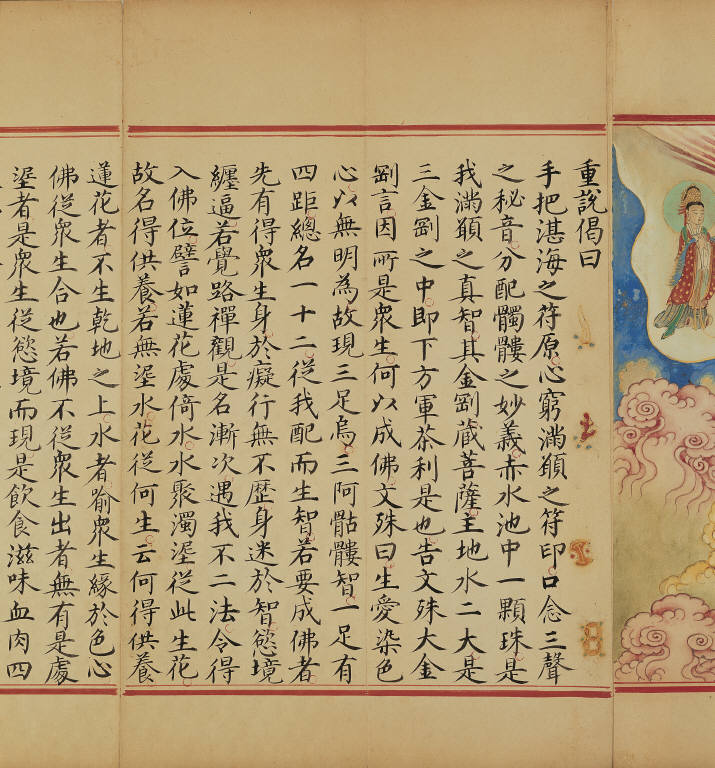 重說偈曰
手把湛海之符原心窮滿願之符印口念三聲
之秘音分配髑髏之妙義赤水池中一顆珠是
我滿願之真智其金剛藏菩薩主地水二大是
三金剛之中即下方軍茶利是也告文殊大金
剛言因所是眾生何以成佛文殊曰生愛染色
心以無明為故現三足烏三阿骷髏智一足有
四距總名一十二從我配而生智若要成佛者
先有得眾生身於癡行無不歷身迷於智慾境
纏逼若覺路禪觀是名漸次遇我不二法令得
入佛位譬如蓮花處倚水水聚濁埿從此生花
故名得供養若無埿水花從何生云何得供養
蓮花者不生乾地之上水者喻眾生緣於色心
佛從眾生合也若佛不從眾生出者無有是處
埿者是眾生從慾境而現是飲食滋味血肉四